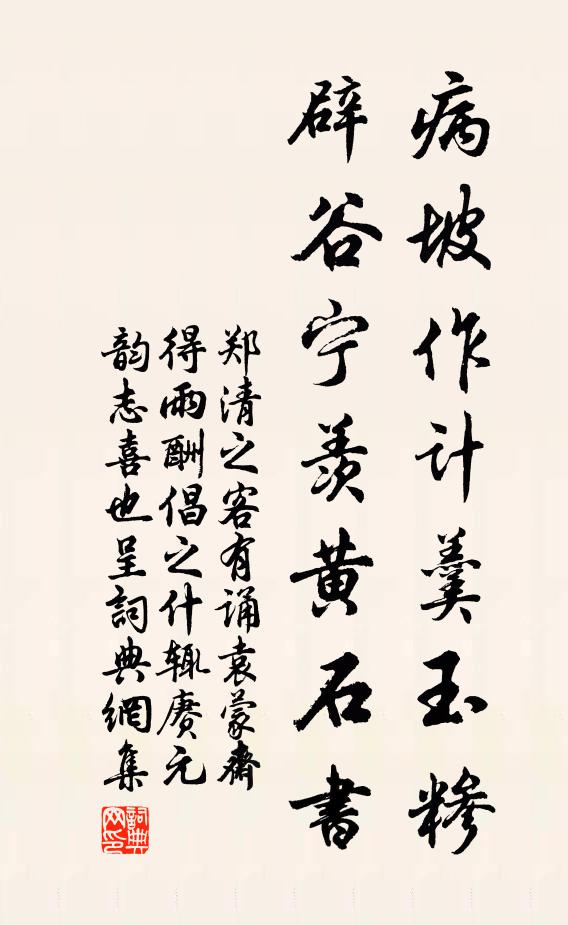 病坡作计羹玉糁
辟谷宁羡黄石書
郑清之客有诵袁蒙齋
得雨酬倡之什辄赓元
韵志喜也呈詞典網集
詞典網印